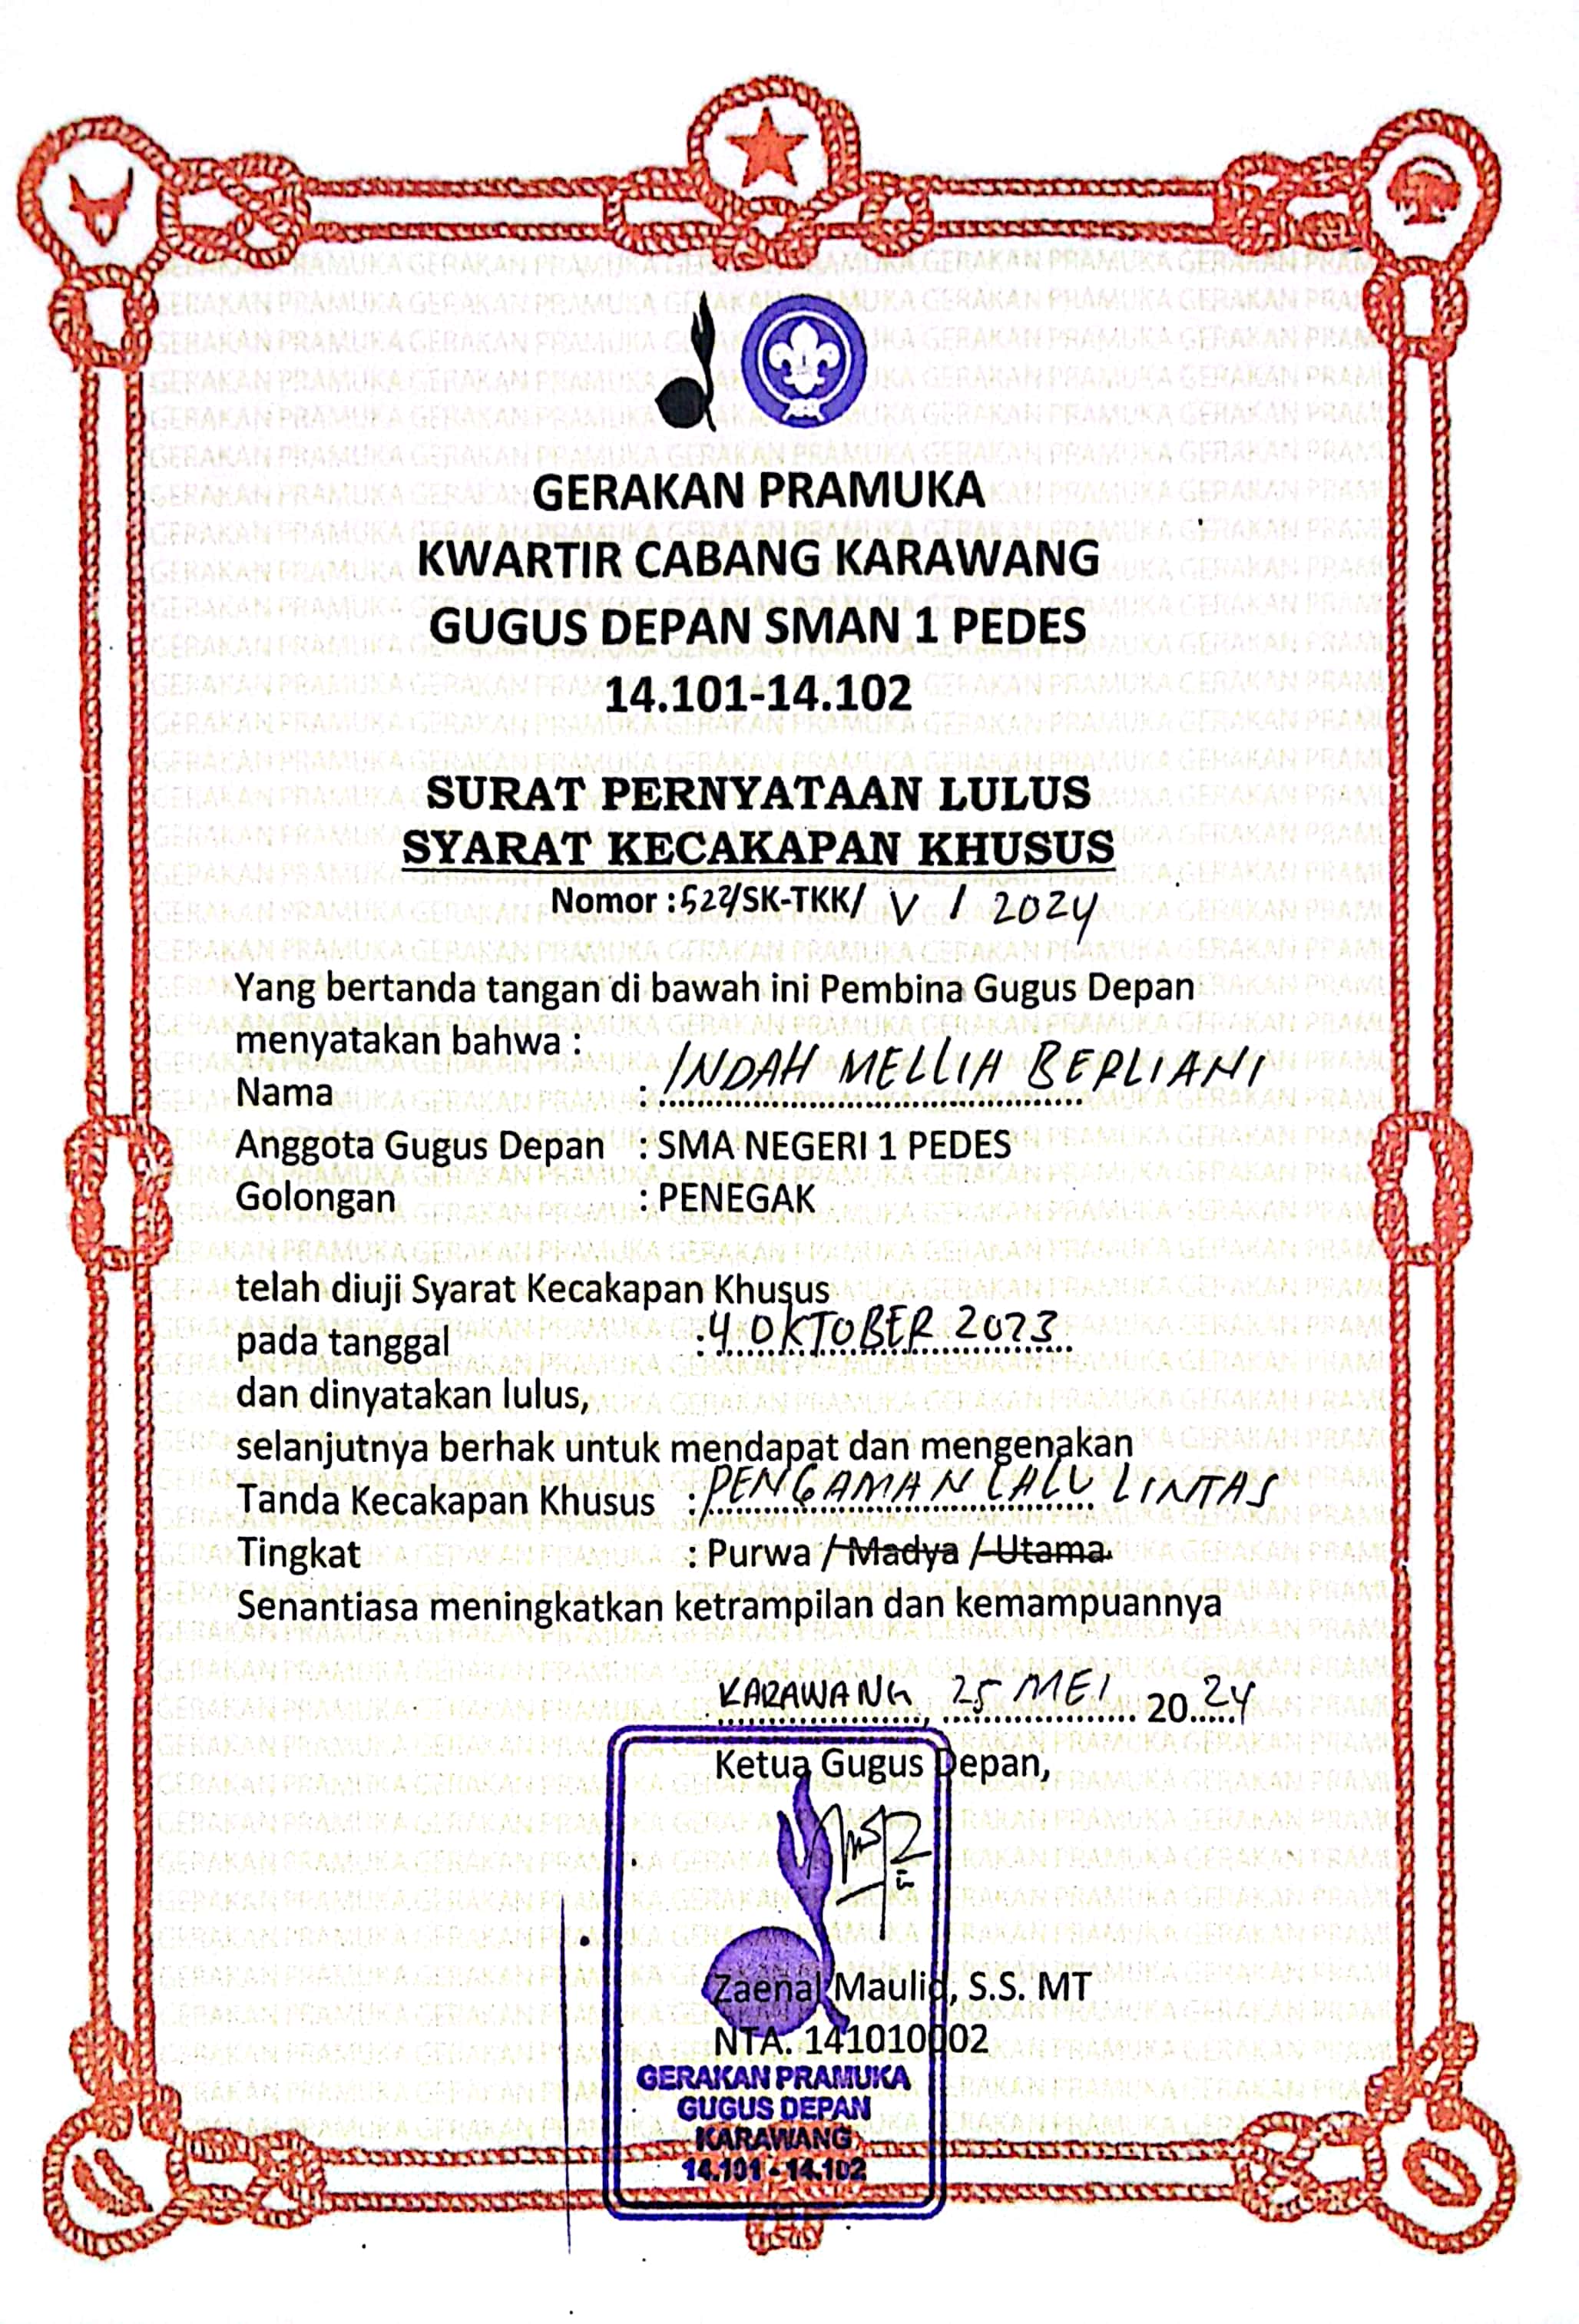 GERAKAN PRAMUKA
KWARTIR CABANG KARAWANG
GUGUS DEPAN SMAN 1 PEDES
14.101-14.102
SURAT PERNYATAAN LULUS
SYARAT KECAKAPAN KHUSUS
Nomor : 522/SK-TKK/ V / 2024
Yang bertanda tangan di bawah ini Pembina Gugus Depan
menyatakan bahwa :
Nama : INDAH MELLIA BERLIANI
Anggota Gugus Depan : SMA NEGERI 1 PEDES
Golongan : PENEGAK
telah diuji Syarat Kecakapan Khusus
pada tanggal : 4 OKTOBER 2023
dan dinyatakan lulus,
selanjutnya berhak untuk mendapat dan mengenakan
Tanda Kecakapan Khusus : PENGAMAN LALU LINTAS
Tingkat : Purwa / Madya / Utama
Senantiasa meningkatkan ketrampilan dan kemampuannya
KARAWANG, 25 MEI 2024
Ketua Gugus Depan,
Zaenal Maulid, S.S. MT
NTA. 141010002
GERAKAN PRAMUKA
GUGUS DEPAN
KARAWANG
14.101 - 14.102